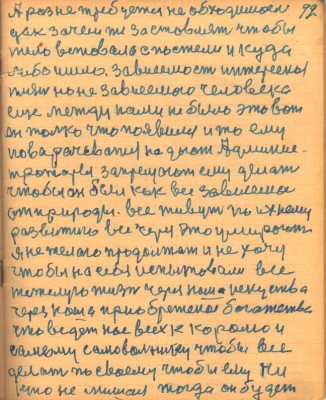 А раз не требуется необходимост 92
дак зачем ти заставлят чтобы
тило ветовало с постели и куда
либо шло. Зависемост интересы
плят но не зависемого человека
ище между нами не было это вот
он толко что появилси и то ему
поварачеватси на дают Админис-
трожоры, запрещают ему делат
чтобы он был как все зависемы
от природы. все живут по ихнему
развитию все через это умирают
Я не желаю продолжат и не хочу
чтобы на себя испытовали все
тежолую жизт через наша искуства
через наша приобретеная богатства
что ведет нас всех к королю и
самому самовольнику чтобы все
делат по своему чтобы ему ни
кто не мишал тогда он будет